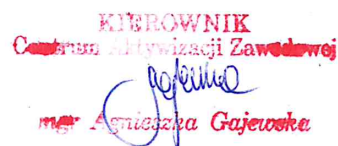 KIEROWNIK
Centrum Aktywizacji Zawodowej
mgr Agnieszka Gajewska